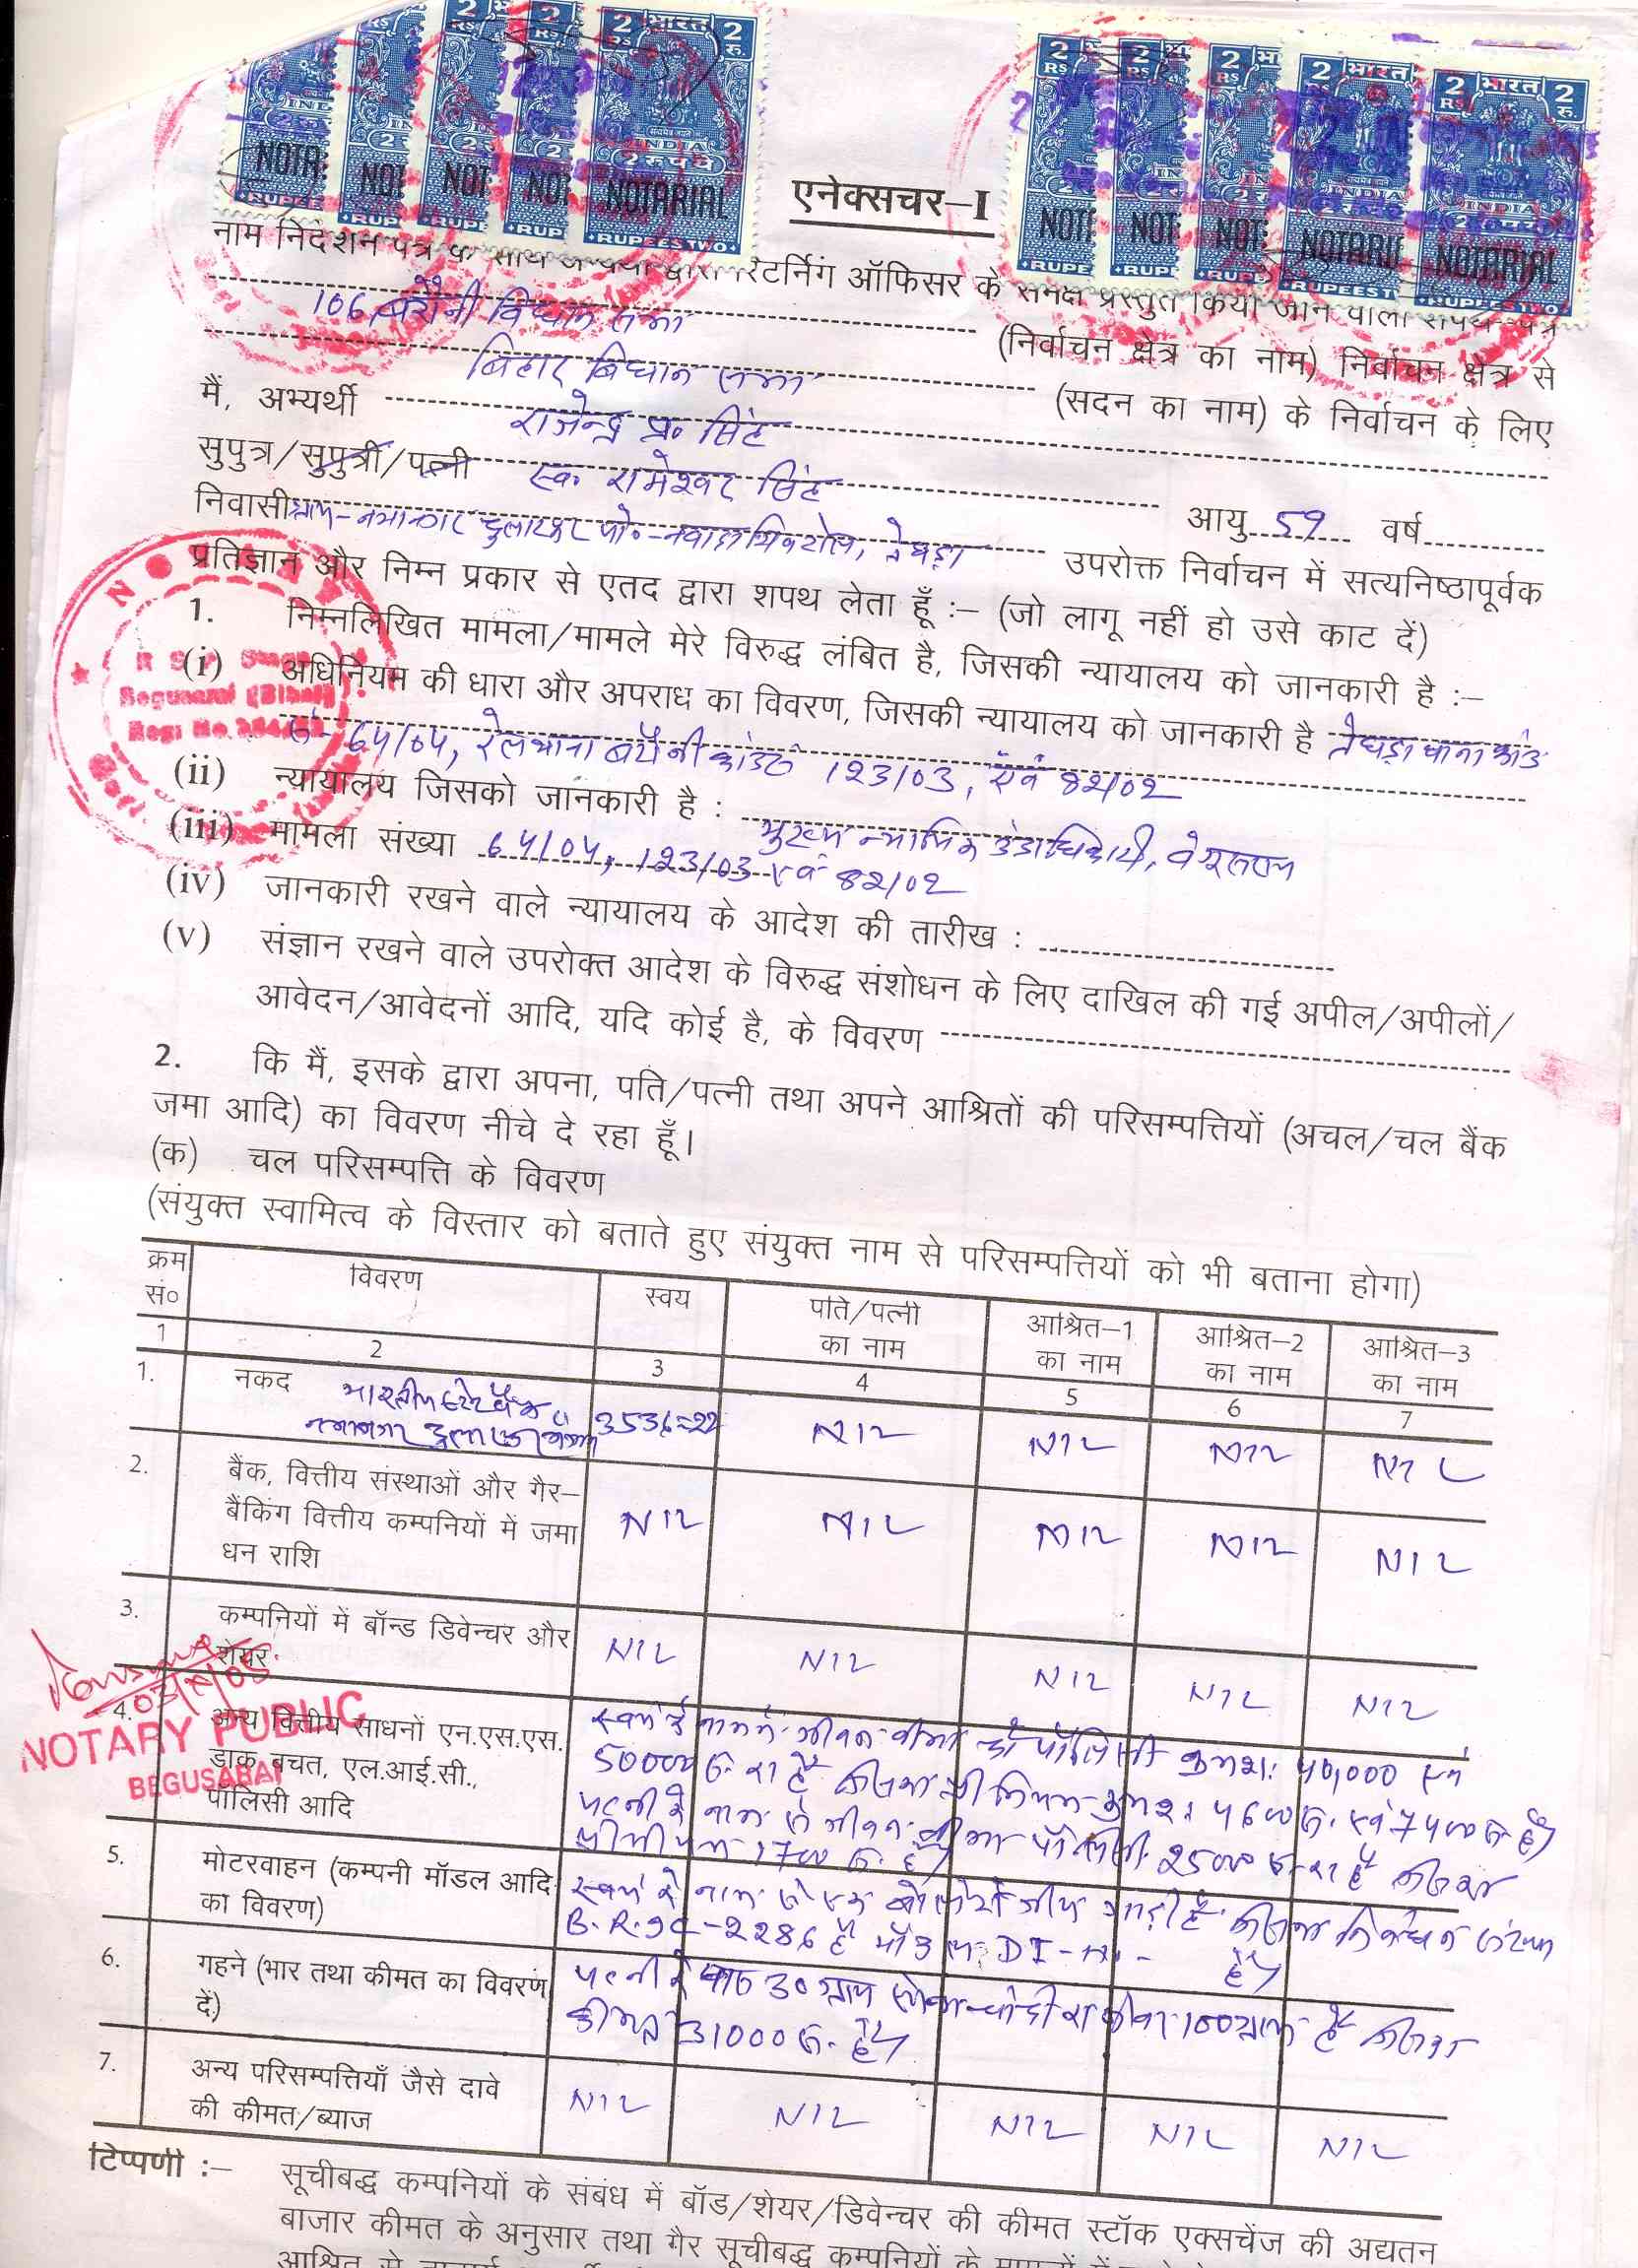 एनेक्सचर–I
नाम निर्देशन पत्र के साथ अभ्यर्थी द्वारा रिटर्निंग ऑफिसर के समक्ष प्रस्तुत किया जाने वाला शपथ–पत्र
106, बरौनी विधान सभा (निर्वाचन क्षेत्र का नाम) निर्वाचन क्षेत्र से
बिहार विधान सभा (सदन का नाम) के निर्वाचन के लिए
मैं, अभ्यर्थी राजेन्द्र प्र० सिंह
सुपुत्र/सुपुत्री/पत्नी स्व. रामेश्वर सिंह आयु 59 वर्ष
निवासी ग्राम- पो०- तेघड़ा उपरोक्त निर्वाचन में सत्यनिष्ठापूर्वक
प्रतिज्ञान और निम्न प्रकार से एतद द्वारा शपथ लेता हूँ :– (जो लागू नहीं हो उसे काट दें)
1. निम्नलिखित मामला/मामले मेरे विरुद्ध लंबित है, जिसकी न्यायालय को जानकारी है :–
(i) अधिनियम की धारा और अपराध का विवरण, जिसकी न्यायालय को जानकारी है तेघड़ा थाना कांड
सं- 64/04, रेल थाना बरौनी कांड सं 123/03, एवं 82/02
(ii) न्यायालय जिसको जानकारी है : मुख्य न्यायिक दंडाधिकारी, बेगूसराय
(iii) मामला संख्या 64/04, 123/03 एवं 82/02
(iv) जानकारी रखने वाले न्यायालय के आदेश की तारीख :
(v) संज्ञान रखने वाले उपरोक्त आदेश के विरुद्ध संशोधन के लिए दाखिल की गई अपील/अपीलों/
आवेदन/आवेदनों आदि, यदि कोई है, के विवरण
2. कि मैं, इसके द्वारा अपना, पति/पत्नी तथा अपने आश्रितों की परिसम्पत्तियों (अचल/चल बैंक
जमा आदि) का विवरण नीचे दे रहा हूँ।
(क) चल परिसम्पत्ति के विवरण
(संयुक्त स्वामित्व के विस्तार को बताते हुए संयुक्त नाम से परिसम्पत्तियों को भी बताना होगा)
क्रम सं० विवरण स्वय पति/पत्नी का नाम आश्रित–1 का नाम आश्रित–2 का नाम आश्रित–3 का नाम
1 2 3 4 5 6 7
1. नकद भारतीय स्टेट बैंक 3536=22 NIL NIL NIL NIL
2. बैंक, वित्तीय संस्थाओं और गैर–
बैंकिंग वित्तीय कम्पनियों में जमा NIL NIL NIL NIL NIL
धन राशि
3. कम्पनियों में बॉन्ड डिवेन्चर और
शेयर NIL NIL NIL NIL NIL
4. अन्य वित्तीय साधनों एन.एस.एस.
डाक बचत, एल.आई.सी.,
पॉलिसी आदि
स्वयं के नाम से जीवन बीमा की पॉलिसी क्रमशः 40,000 एवं
50000 रु. का है जिसका प्रीमियम क्रमशः 4600 रु. एवं 7400 रु. है।
पत्नी के नाम से जीवन बीमा पॉलिसी 25000 रु. का है जिसका
प्रीमीयम 1700 रु. है।
5. मोटरवाहन (कम्पनी मॉडल आदि
का विवरण)
स्वयं के नाम से एक बोलेरो जीप गाड़ी है जिसका निबंधन संख्या
B.R.9C-2286 है मॉडल DI- है।
6. गहने (भार तथा कीमत का विवरण
दें)
पत्नी के पास 30 ग्राम सोना चाँदी का जेवर 100 ग्राम है जिसका
कीमत 31000 रु. है।
7. अन्य परिसम्पत्तियाँ जैसे दावे
की कीमत/ब्याज NIL NIL NIL NIL NIL
NOTARY PUBLIC
BEGUSARAI
टिप्पणी :– सूचीबद्ध कम्पनियों के संबंध में बॉड/शेयर/डिवेन्चर की कीमत स्टॉक एक्सचेंज की अद्यतन
बाजार कीमत के अनुसार तथा गैर सूचीबद्ध कम्पनियों के